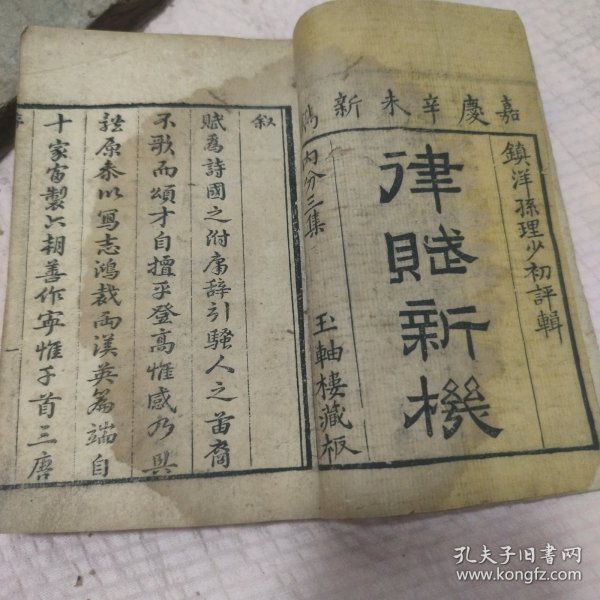 嘉慶辛未新鐫
鎮洋孫理少初評輯
律賦新機
內分三集
玉軸樓藏板
叙
賦爲詩國之附庸辞引騷人之苗裔
不歌而頌才自擅乎登高惟感乃興
體原本以寫志鴻裁兩漢英篇端自
十家宙製六朝善作寧惟子首三唐
孔夫子旧书网
www.kongfz.com